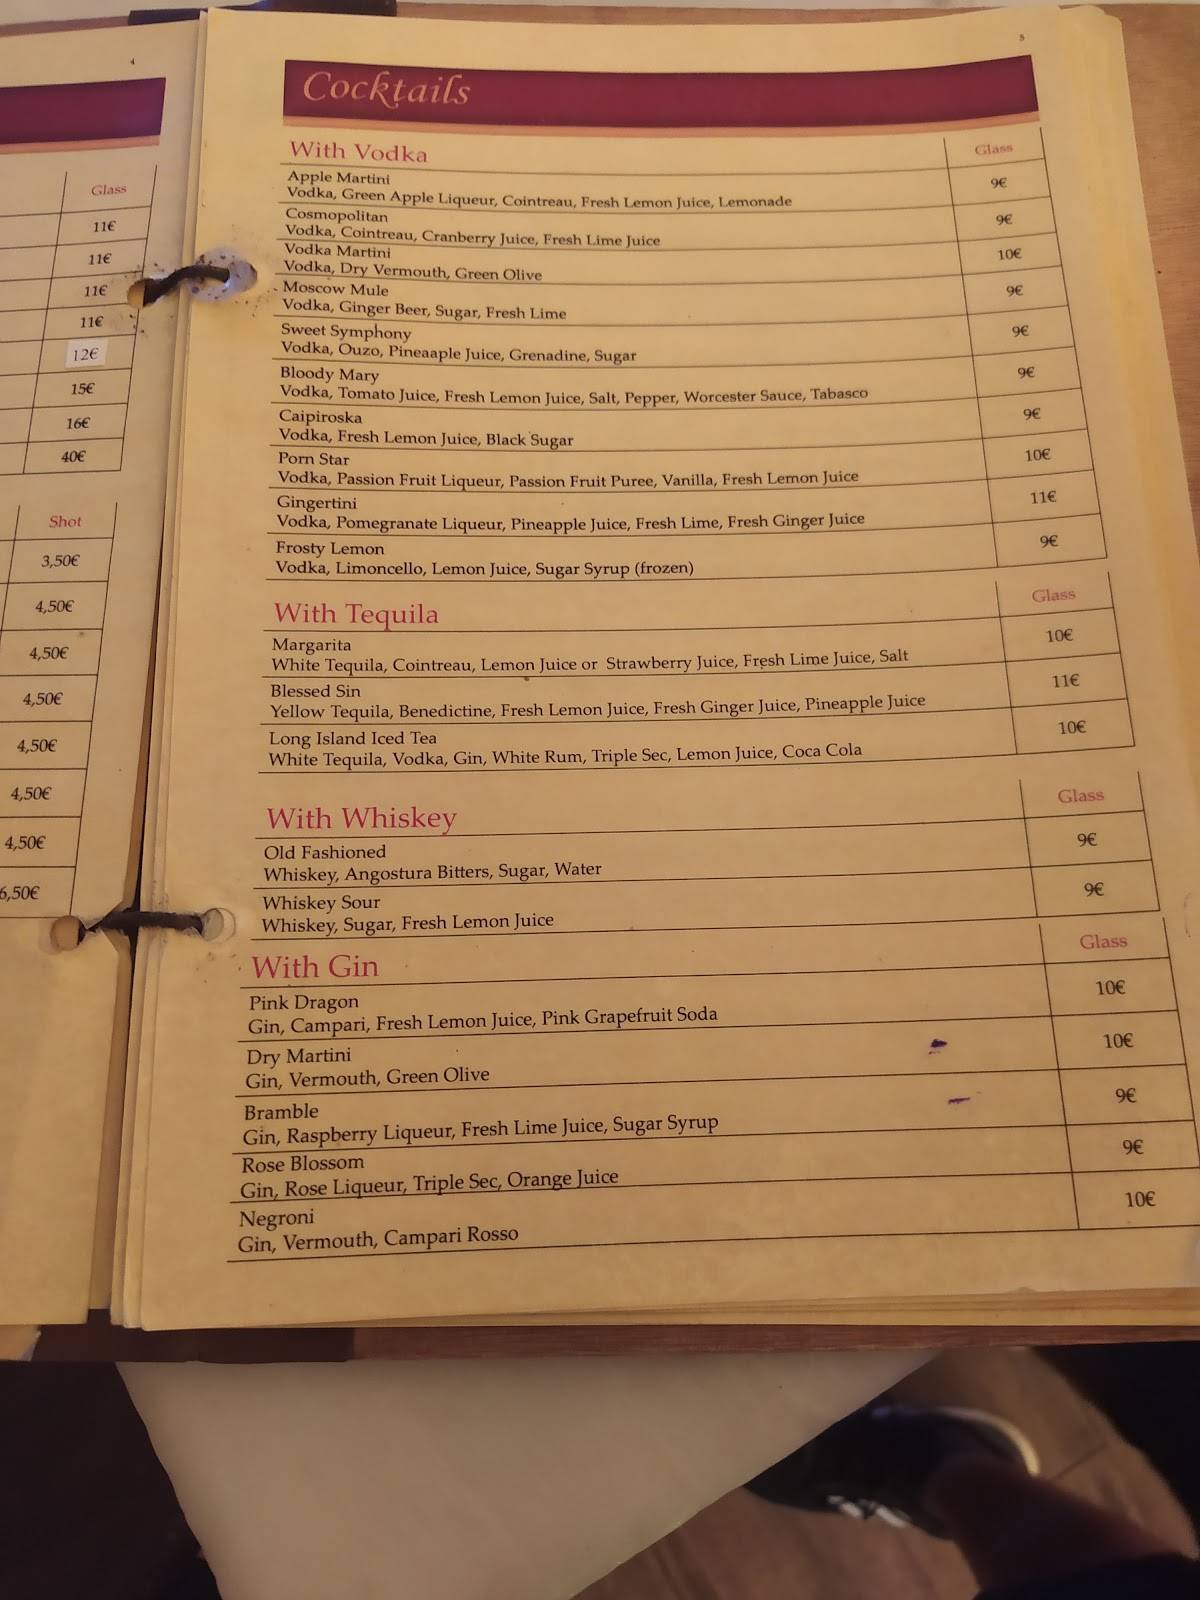 4
Glass
11€
11€
11€
11€
12€
15€
16€
40€
Shot
3,50€
4,50€
4,50€
4,50€
4,50€
4,50€
4,50€
6,50€
5
Cocktails
With Vodka Glass
Apple Martini 9€
Vodka, Green Apple Liqueur, Cointreau, Fresh Lemon Juice, Lemonade
Cosmopolitan 9€
Vodka, Cointreau, Cranberry Juice, Fresh Lime Juice
Vodka Martini 10€
Vodka, Dry Vermouth, Green Olive
Moscow Mule 9€
Vodka, Ginger Beer, Sugar, Fresh Lime
Sweet Symphony 9€
Vodka, Ouzo, Pineaaple Juice, Grenadine, Sugar
Bloody Mary 9€
Vodka, Tomato Juice, Fresh Lemon Juice, Salt, Pepper, Worcester Sauce, Tabasco
Caipiroska 9€
Vodka, Fresh Lemon Juice, Black Sugar
Porn Star 10€
Vodka, Passion Fruit Liqueur, Passion Fruit Puree, Vanilla, Fresh Lemon Juice
Gingertini 11€
Vodka, Pomegranate Liqueur, Pineapple Juice, Fresh Lime, Fresh Ginger Juice
Frosty Lemon 9€
Vodka, Limoncello, Lemon Juice, Sugar Syrup (frozen)
With Tequila Glass
Margarita 10€
White Tequila, Cointreau, Lemon Juice or Strawberry Juice, Fresh Lime Juice, Salt
Blessed Sin 11€
Yellow Tequila, Benedictine, Fresh Lemon Juice, Fresh Ginger Juice, Pineapple Juice
Long Island Iced Tea 10€
White Tequila, Vodka, Gin, White Rum, Triple Sec, Lemon Juice, Coca Cola
With Whiskey Glass
Old Fashioned 9€
Whiskey, Angostura Bitters, Sugar, Water
Whiskey Sour 9€
Whiskey, Sugar, Fresh Lemon Juice
With Gin Glass
Pink Dragon 10€
Gin, Campari, Fresh Lemon Juice, Pink Grapefruit Soda
Dry Martini 10€
Gin, Vermouth, Green Olive
Bramble 9€
Gin, Raspberry Liqueur, Fresh Lime Juice, Sugar Syrup
Rose Blossom 9€
Gin, Rose Liqueur, Triple Sec, Orange Juice
Negroni 10€
Gin, Vermouth, Campari Rosso